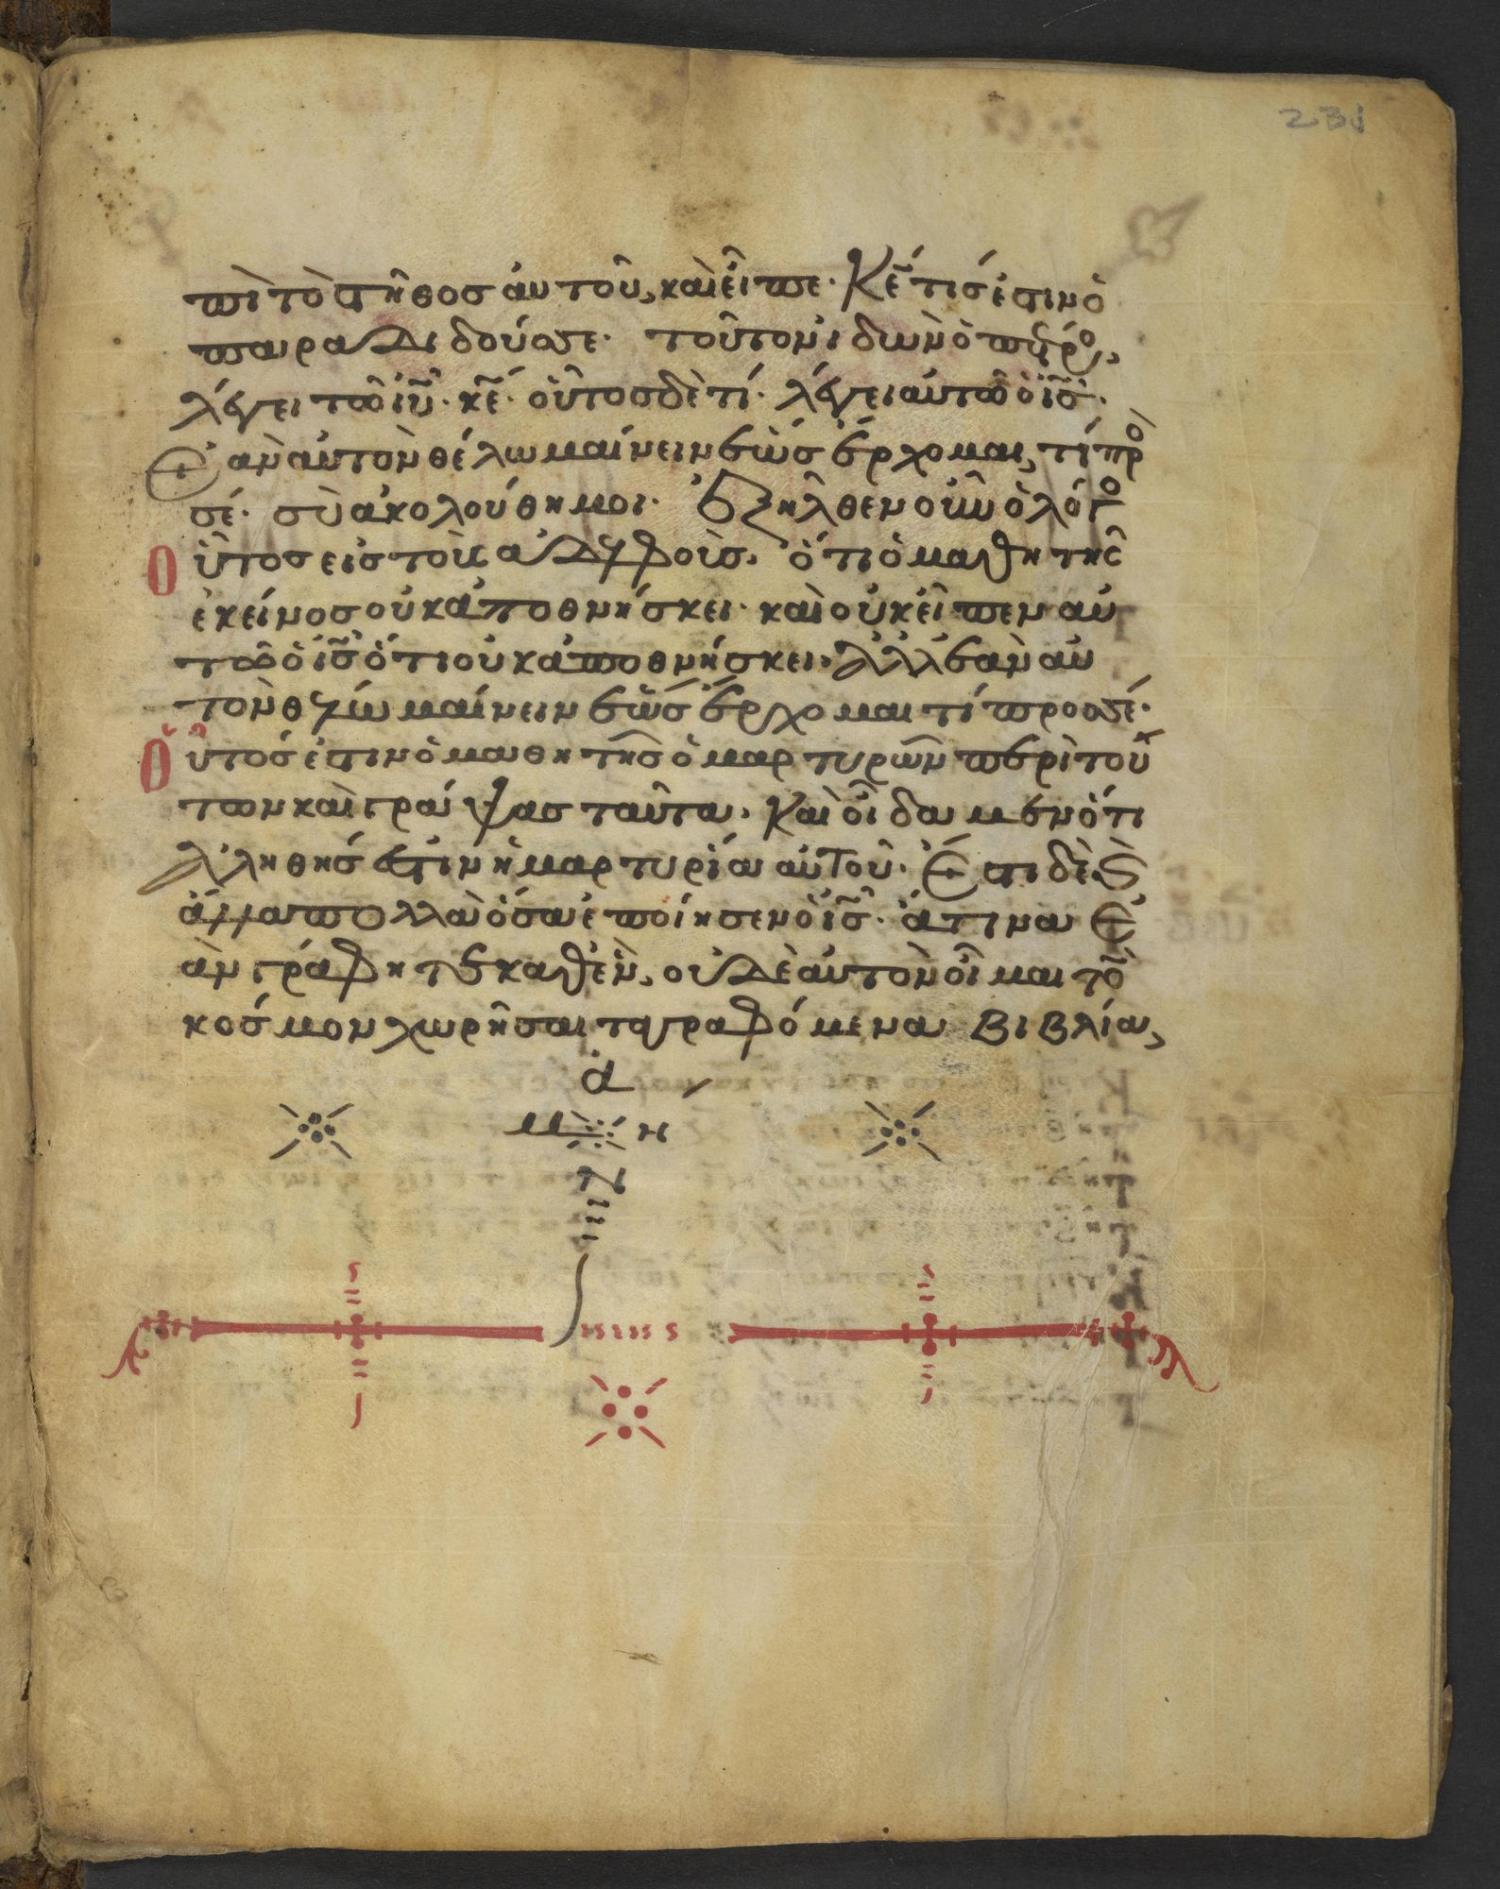 231
πὶ τὸ στῆθος αὐτοῦ, καὶ εἶπε· Κε̄ τίς ἐστιν ὁ
παραδιδούς σε· τοῦτον ἰδὼν ὁ πέτρο,
λέγει τῶ ιῦ· κε̄· οὗτος δὲ τί· λέγει αὐτῶ ὁ ις̄·
Ἐὰν αὐτὸν θέλω μαίνειν ἕως ἔρχομαι, τί πρὸ
σέ· σὺ ἀκολούθη μοι· Ἐξῆλθεν οὖν ὁ λόγο
οὗτος εἰς τοὺς ἀδελφοὺς, ὅτι ὁ μαθητὴς
ἐκείνος οὐκ ἀποθνήσκει· καὶ οὐκ εἶπεν αὐ
τῶ ὁ ις̄ ὅτι οὐκ ἀποθνήσκει, Ἀλλ ἐὰν αὐ
τὸν θέλω μαίνειν ἕως ἔρχομαι τί προσσέ·
Οὗτός ἐστιν ὁ μαθητὴς ὁ μαρτυρῶν περὶ τού
των καὶ γράψας ταῦτα· Καὶ οἶδαμεν ὅτι
ἀληθής ἐστιν ἡ μαρτυρία αὐτοῦ· Ἔστι δὲ ϗ
ἄλλα πολλὰ ὅσα ἐποίησεν ὁ ις̄· ἅτινα ἐ
ὰν γράφητε καθὲν, οὐδὲ αὐτὸν οἶμαι τὸ
κόσμον χωρῆσαι τα γραφόμενα βιβλία,
ἀ
μ η
ν